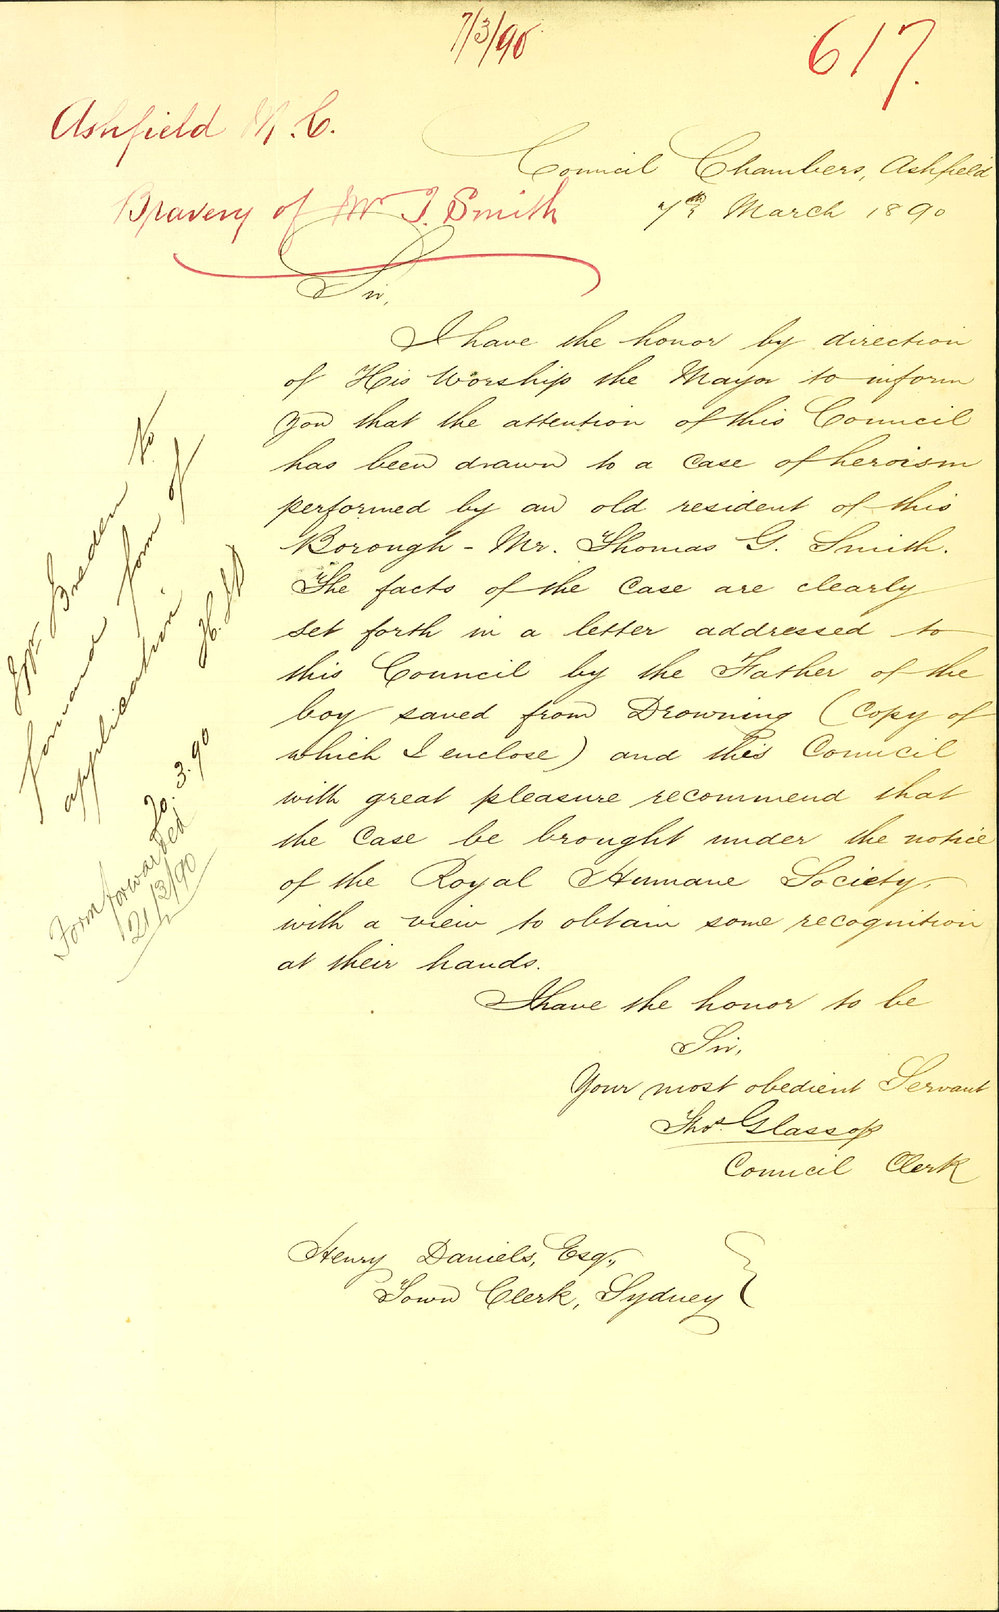 7/3/90
617.
Ashfield M.C.
Bravery of Mr T. Smith
Council Chambers, Ashfield
7th March 1890
Sir,
I have the honor by direction
of His Worship the Mayor to inform
you that the attention of this Council
has been drawn to a case of heroism
performed by an old resident of this
Borough - Mr. Thomas G. Smith.
The facts of the case are clearly
set forth in a letter addressed to
this Council by the Father of the
boy saved from Drowning (copy of
which I enclose) and this Council
with great pleasure recommend that
the case be brought under the notice
of the Royal Humane Society,
with a view to obtain some recognition
at their hands.
I have the honor to be
Sir,
Your most obedient Servant
Thos. Glassop
Council Clerk
Henry Daniels, Esq.,
Town Clerk, Sydney
to
forward form of
application
20.3.90
Form forwarded
21/3/90